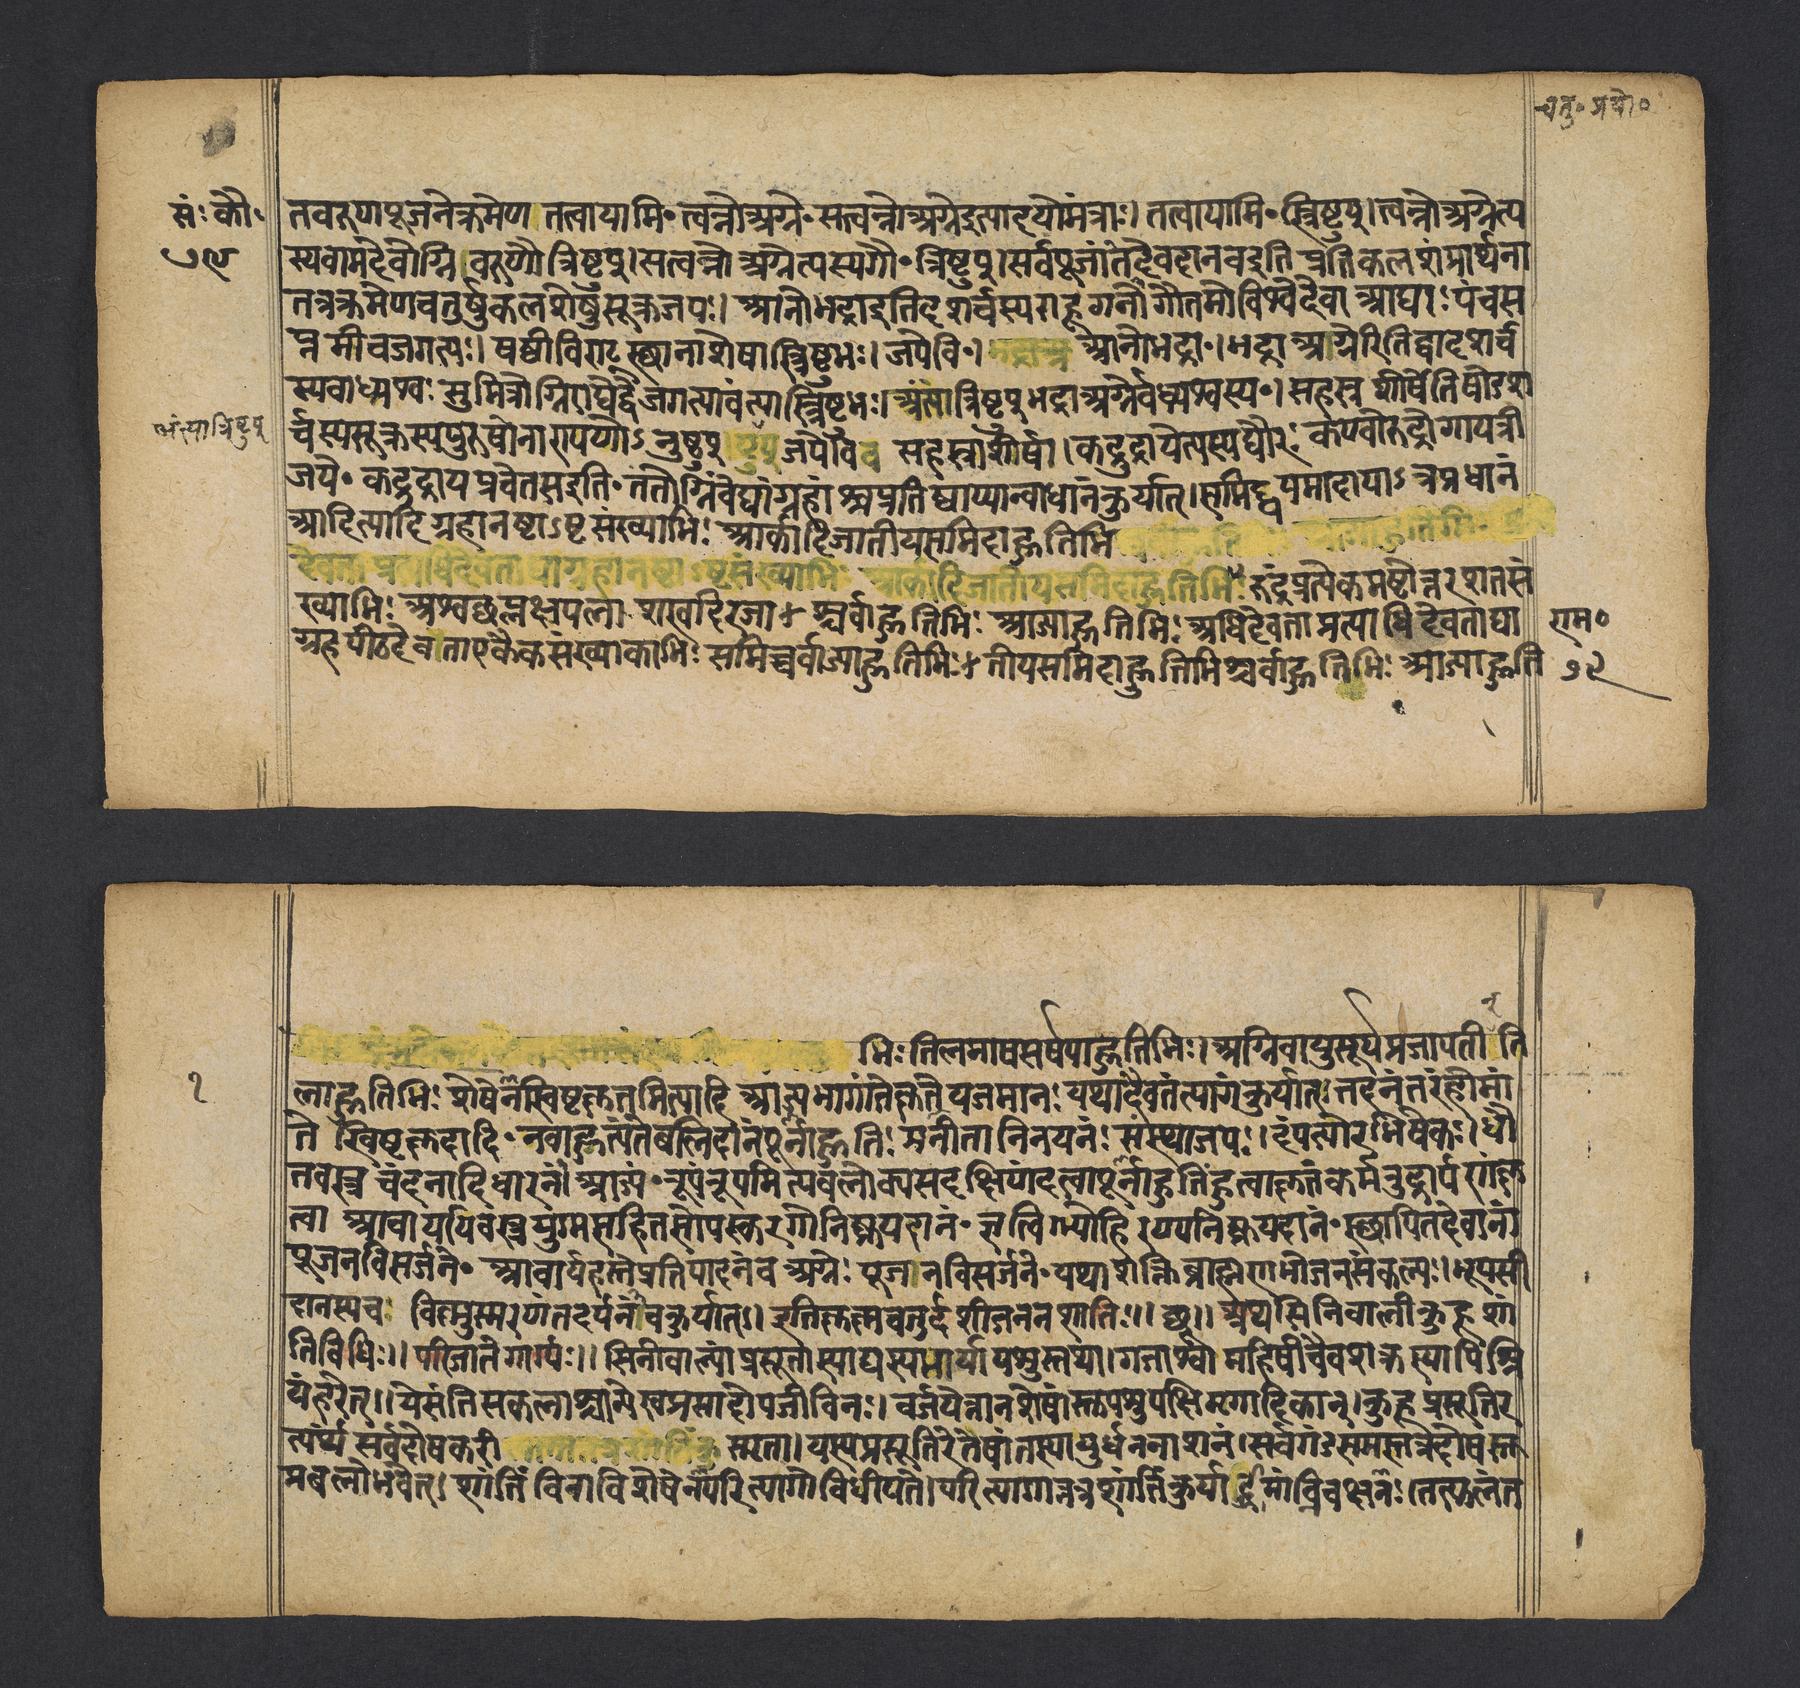 चतु॰ प्रयो॰
सं: कौ:
७९
तवरुणपूजनेक्रमेण तत्वायामि॰ त्वन्नोअग्ने॰ सत्वन्नोअग्नेइत्यादयोमंत्राः। तत्वायामि॰ स्त्रिष्टुप्। त्वन्नोअग्नेत्य
स्यवामदेवोग्नि वरुणौ त्रिष्टुप्। सत्वन्नो अग्नेत्यस्यगौ॰ त्रिष्टुप्। सर्वपूजांतेदेवदानवइति प्रतिकलशंप्रार्थना
तत्रक्रमेणचतुर्षुकलशेषुसूक्तजपः। आनोभद्राइतिदशर्चस्यराहूगनोगौतमोविश्वेदेवा आद्याः पंचस
प्त मीचजगत्यः। षष्ठीविराट्स्थानाशेषास्त्रिष्टुभः। जपेवि॰। आनोभद्रा॰। भद्रा अग्नेरितिद्वादशर्च
स्यवाध्यश्वः सुमित्रोग्निराद्येद्वेजगत्यावंत्यास्त्रिष्टुभः। अंत्यात्रिष्टुप् भद्राअग्नेर्वध्यश्वस्य॰। सहस्र शीर्षेतिषोडश
अंत्यात्रिष्टुप्
र्चस्यसूक्तस्यपुरुषोनारायणोऽनुष्टुप् जपेवि सहस्त्रशीर्षा। कद्रुद्रायेत्यस्यघौरः कण्वोरुद्रोगायत्री
जपे॰ कद्रुद्राय प्रचेतसइति॰ ततोग्निंवेद्यांग्रहां श्चप्रतिष्ठाप्यान्वाधानंकुर्यात्। समिद्द्वयमादायाऽत्रप्रधानं
आदित्यादि ग्रहानष्टाऽष्ट संख्याभिः आर्कादिजातीयसमिदाहुतिभि
देवता प्रत्यधिदेवता ग्रहानष्टाऽष्टसंख्याभिः आर्कादिजातीयसमिदाहुतिभिः रुद्रंप्रत्येकमष्टोत्तरशतसं
ख्याभिः अश्वत्थप्लक्षपला शखदिरजा श्चर्वाहुतिभिः आज्याहुतिभिः अधिदेवता प्रत्याधिदेवताद्या
राम॰
ग्रहपीठदेवताएकैकसंख्याकाभिः समिच्चर्वाज्याहुतिभिः तीयसमिदाहुतिभिश्चर्वाहुतिभिः आज्याहुति
७९
भिः तिलमाषसर्षपाहुतिभिः। अग्निवायुसूर्यप्रजापती ति
लाहुतिभिः शेषेनस्विष्टकृतमित्यादि आज्यभागांतेकृते यजमानः यथादैवतंत्यागंकुर्यात् तदनंतरंहोमां
ते स्विष्टकृदादि॰ नवाहुत्यंतेबलिदानंपूर्नाहुतिः प्रनीतानिनयनं संस्थाजपः। दंपत्योरभिषेकः। धौ
तवस्त्र चंदनादिधारनं आज्यं॰ रूपंरूपमित्यवलोक्यसदक्षिणंदत्वापूर्नाहुतिंहुत्वाकृतंकर्मरुद्रार्पणंकृ
त्वा आचार्यायवस्त्रयुग्मसहितसोपस्करगोनिष्क्रयदानं॰ ऋत्विग्भ्योहिरण्यनिष्क्रयदानं॰ स्थापितदेवानां
पूजनविसर्जने॰ आचार्यहस्तेप्रतिपादनंच अग्नेः पूजानविसर्जने॰ यथाशक्तिब्राह्मणभोजनसंकल्पः। भूयसी
दानस्यच विष्णुस्मरणंतदर्पनंचकुर्यात्। इतिकृष्णचतुर्दशीजननशांतिः।। छ।। अथ सिनिवालीकुहूशां
तिविधिः।। पारिजाते गार्ग्यः।। सिनीवाल्यां प्रसूतास्याद्यस्यभार्यापशुस्तथा। गजाश्वा महिषीचैवशक्रस्यापिश्रि
यंहरेत्।। येसंतिसकलाश्चान्येस्वप्रसादोपजीविनः। वर्जयेत्तानशेषांस्तुपशुपक्षिमृगादिकान्। कुहू प्रसूतिर
त्यर्थं सर्वदोषकरी स्मृता। यस्यप्रसूतिरेतेषांतस्यायुर्धननाशनं। सर्वगंडसमस्तत्रदोषस्तु
प्रबलोभवेत्। शांतिं विनाविशेषेनपरित्यागोविधीयते। परित्यागात्तत्रशांतिंकुर्याद्धीमान्विचक्षनः। तत्फलंत